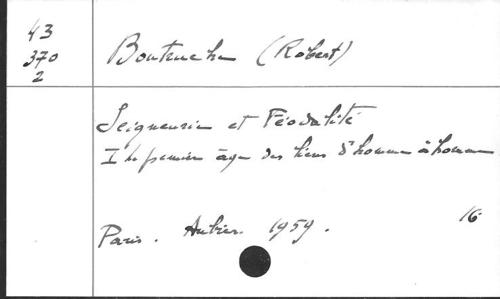 43
370
2
Boutruche (Robert)
Seigneurie et Féodalité
I le premier âge des liens d'homme à homme
Paris. Aubier. 1959.
16